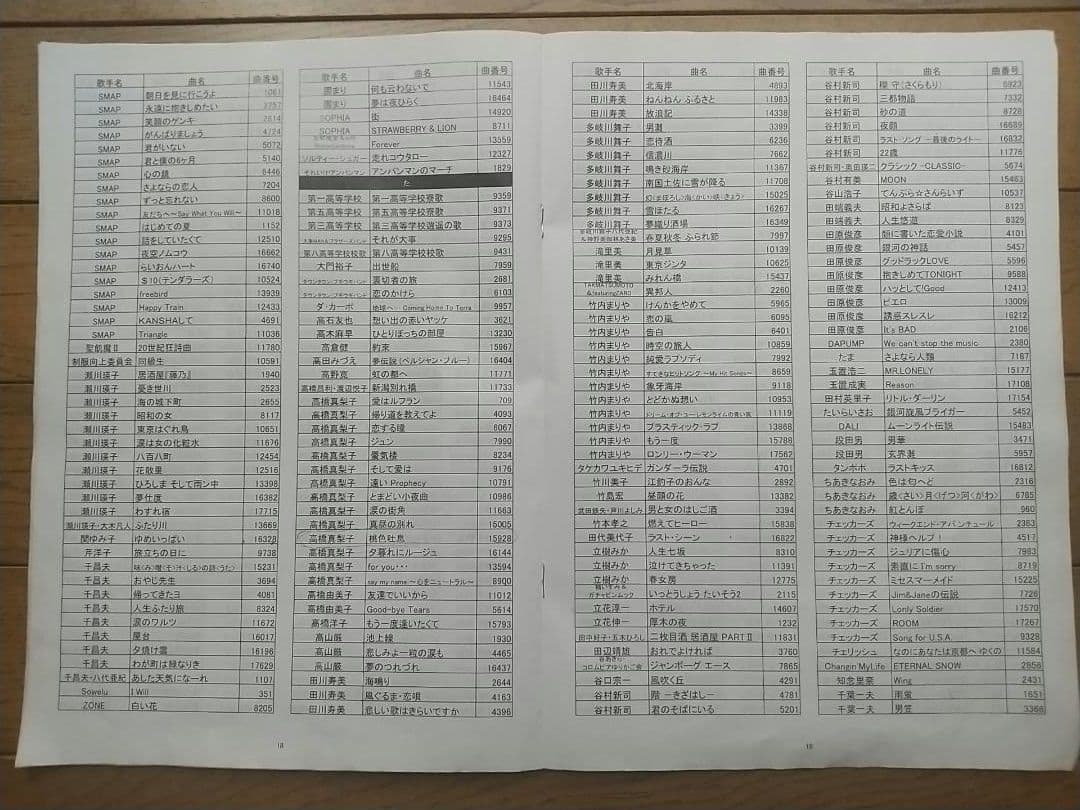 歌手名 曲名 曲番号
SMAP 朝日を見に行こうよ 1061
SMAP 永遠に抱きしめたい 3757
SMAP 笑顔のゲンキ 2614
SMAP がんばりましょう 4724
SMAP 君がいない 5072
SMAP 君と僕の6ヶ月 5140
SMAP 心の鏡 8446
SMAP さよならの恋人 7204
SMAP ずっと忘れない 8600
SMAP 友だちへ~Say What You Will~ 11018
SMAP はじめての夏 1152
SMAP 話をしていたくて 12510
SMAP 夜空ノムコウ 16662
SMAP らいおんハート 16740
SMAP $10(テンダラーズ) 10524
SMAP freebird 13939
SMAP Happy Train 12433
SMAP KANSHAして 4691
SMAP Triangle 11036
聖飢魔Ⅱ 20世紀狂詩曲 11780
制服向上委員会 同級生 10591
瀬川瑛子 居酒屋『藤乃』 1940
瀬川瑛子 憂き世川 2523
瀬川瑛子 海の城下町 2655
瀬川瑛子 昭和の女 8117
瀬川瑛子 東京はぐれ鳥 10651
瀬川瑛子 涙は女の化粧水 11676
瀬川瑛子 八百八町 12454
瀬川瑛子 花散里 12516
瀬川瑛子 ひろしま そして雨ン中 13398
瀬川瑛子 夢仕度 16382
瀬川瑛子 わすれ宿 17715
瀬川瑛子・大木凡人 ふたり川 13669
関ゆみ子 ゆめいっぱい 16328
芹洋子 旅立ちの日に 9738
千昌夫 味(み)噌(そ)汁(しる)の詩(うた) 15231
千昌夫 おやじ先生 3694
千昌夫 帰ってきたヨ 4081
千昌夫 人生ふたり旅 8324
千昌夫 涙のワルツ 11672
千昌夫 屋台 16017
千昌夫 夕焼け雲 16196
千昌夫 わが町は緑なりき 17629
千昌夫・八代亜紀 あした天気になーれ 1107
Sowelu I Will 351
ZONE 白い花 8205
18
歌手名 曲名 曲番号
園まり 何も云わないで 11543
園まり 夢は夜ひらく 16464
SOPHIA 街 14920
SOPHIA STRAWBERRY & LION 8711
Forever 13559
ソルティー・シュガー 走れコウタロー 12327
それいけ!アンパンマン アンパンマンのマーチ 1829
た
第一高等学校 第一高等学校寮歌 9359
第五高等学校 第五高等学校寮歌 9371
第三高等学校 第三高等学校逍遥の歌 9373
大事MANブラザーズバンド それが大事 9295
第八高等学校 第八高等学校校寮歌 9431
大門裕子 出世船 7959
ダウンタウン・ブギウギバンド 裏切者の旅 2681
ダウンタウン・ブギウギバンド 恋のかけら 6103
ダ・カーポ 地球へ…Coming Home To Terra 9957
高石友也 想い出の赤いヤッケ 3712
高木麻早 ひとりぼっちの部屋 13230
高倉健 約束 15967
高田みづえ 夢伝説(ペルシャン・ブルー) 16404
高野寛 虹の都へ 11771
高橋昌利・渡辺悦子 新潟別れ橋 11733
高橋真梨子 愛はルフラン 709
高橋真梨子 帰り道を教えてよ 4093
高橋真梨子 恋する瞳 6067
高橋真梨子 ジュン 7990
高橋真梨子 蜃気楼 8234
高橋真梨子 そして愛は 9176
高橋真梨子 遠い Prophecy 10791
高橋真梨子 とまどい小夜曲 10986
高橋真梨子 涙の街角 11663
高橋真梨子 真昼の別れ 16005
高橋真梨子 桃色吐息 15928
高橋真梨子 夕暮れにルージュ 16144
高橋真梨子 for you・・・ 13594
高橋真梨子 say my name ~心をニュートラル~ 8900
高橋由美子 友達でいいから 11012
高橋由美子 Good-bye Tears 5614
高橋洋子 もう一度逢いたくて 15793
高山厳 池上線 1930
高山厳 悲しみよ一粒の涙も 4465
高山厳 夢のつれづれ 16437
田川寿美 海鳴り 2644
田川寿美 風ぐるま・恋唄 4163
田川寿美 悲しい歌はきらいですか 4396
歌手名 曲名 曲番号
田川寿美 北海岸 4893
田川寿美 ねんねん ふるさと 11983
田川寿美 放浪記 14338
多岐川舞子 男灘 3399
多岐川舞子 恋待酒 6236
多岐川舞子 信濃川 7662
多岐川舞子 鳴き砂海岸 11367
多岐川舞子 南国土佐に雪が降る 11708
多岐川舞子 幻(まぼろし)海(かい)峡(きょう) 15025
多岐川舞子 雪ほたる 16267
多岐川舞子 夢織り酒場 16349
春夏秋冬 ふられ節 7997
滝里美 月見草 10139
滝里美 東京ジンタ 10625
滝里美 みれん橋 15437
TAKMATSUMOTO &featuringZARD 異邦人 2260
竹内まりや けんかをやめて 5965
竹内まりや 恋の嵐 6095
竹内まりや 告白 6401
竹内まりや 時空の旅人 10859
竹内まりや 純愛ラプソディ 7992
竹内まりや すてきなヒットソング ~My Hit Songs~ 8659
竹内まりや 象牙海岸 9118
竹内まりや とどかぬ想い 10953
竹内まりや ドリーム・オブ・ユーレモンライムの青い風 11119
竹内まりや プラスティック・ラブ 13868
竹内まりや もう一度 15788
竹内まりや ロンリー・ウーマン 17562
タケカワユキヒデ ガンダーラ伝説 4701
竹川美子 江釣子のおんな 2892
竹島宏 昼顔の花 13382
武田鉄矢・芦川よしみ 男と女のはしご酒 3394
竹本孝之 燃えてヒーロー 15838
田代美代子 ラスト・シーン 16822
立樹みか 人生七坂 8310
立樹みか 泣けてきちゃった 11391
立樹みか 春女房 12775
ガチャピン&ムック いっとうしょう たいそう2 2115
立花淳一 ホテル 14607
立花伸一 厚木の夜 1232
田中好子・五木ひろし 二枚目酒 居酒屋 PARTⅡ 11831
田辺靖雄 おれでよければ 3760
コロムビアゆりかご会 ジャンボーグ エース 7865
谷口宗一 風吹く丘 4291
谷村新司 階 -きざはし- 4781
谷村新司 君のそばにいる 5201
19
歌手名 曲名 曲番号
谷村新司 櫻守(さくらもり) 6923
谷村新司 三都物語 7332
谷村新司 砂の道 8728
谷村新司 夜顔 16689
谷村新司 ラスト・ソング -最後のライト- 16832
谷村新司 22歳 11776
谷村新司・奥田瑛二 クラシック -CLASSIC- 5674
谷村有美 MOON 15463
谷山浩子 てんぷら☆さんらいず 10537
田端義夫 昭和よさらば 8123
田端義夫 人生悠遊 8329
田原俊彦 顔に書いた恋愛小説 4101
田原俊彦 銀河の神話 5457
田原俊彦 グッドラックLOVE 5596
田原俊彦 抱きしめてTONIGHT 9588
田原俊彦 ハッとして!Good 12413
田原俊彦 ピエロ 13009
田原俊彦 誘惑スレスレ 16212
田原俊彦 It's BAD 2106
DAPUMP We can't stop the music 2380
たま さよなら人類 7187
玉置浩二 MR.LONELY 15177
玉置成実 Reason 17108
田村英里子 リトル・ダーリン 17154
たいらいさお 銀河旋風ブライガー 5452
DALI ムーンライト伝説 15483
段田男 男華 3471
段田男 玄界灘 5957
タンポポ ラストキッス 16812
ちあきなおみ 色は匂へど 2316
ちあきなおみ 歳(さい)月(げつ)河(がわ) 6785
ちあきなおみ 紅とんぼ 960
チェッカーズ ウィークエンド アバンチュール 2383
チェッカーズ 神様ヘルプ! 4517
チェッカーズ ジュリアに傷心 7983
チェッカーズ 素直にI'm sorry 8719
チェッカーズ ミセスマーメイド 15225
チェッカーズ Jim&Janeの伝説 7728
チェッカーズ Lonly Soldier 17570
チェッカーズ ROOM 17267
チェッカーズ Song for U.S.A. 9328
チェリッシュ なのにあなたは京都へ ゆくの 11584
Changin MyLife ETERNAL SNOW 2856
知念里奈 Wing 2431
千葉一夫 雨蛍 1651
千葉一夫 男笠 3366